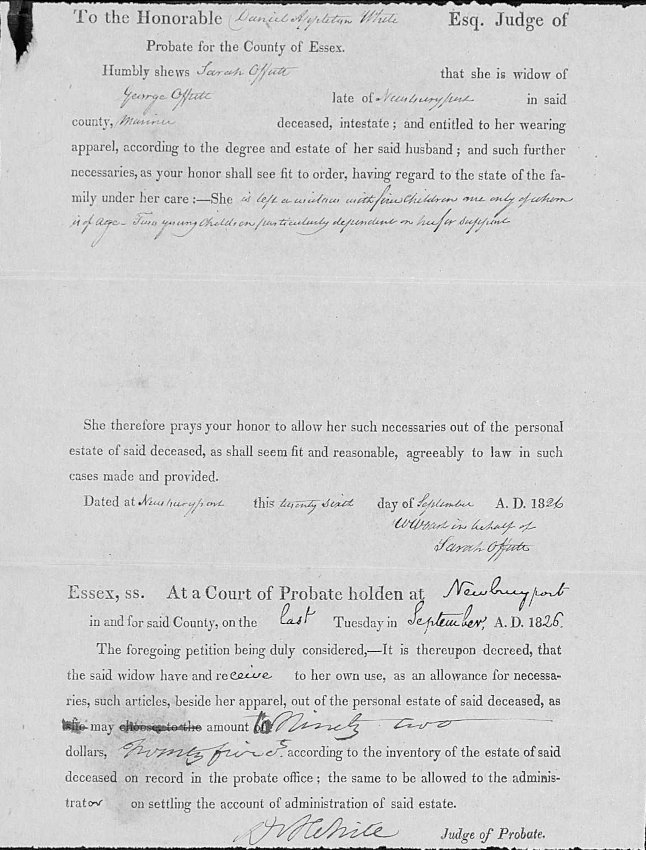 To the Honorable Daniel Appleton White Esq. Judge of
Probate for the County of Essex.
Humbly shews Sarah Offutt that she is widow of
George Offutt late of Newburyport in said
county, Mariner deceased, intestate; and entitled to her wearing
apparel, according to the degree and estate of her said husband; and such further
necessaries, as your honor shall see fit to order, having regard to the state of the fa-
mily under her care:—She is left a widow with five children one only of whom
is of age – Two young children particularly dependent on her for support
She therefore prays your honor to allow her such necessaries out of the personal
estate of said deceased, as shall seem fit and reasonable, agreeably to law in such
cases made and provided.
Dated at Newburyport this twenty sixth day of September A. D. 1826
in behalf of
Sarah Offutt
Essex, ss. At a Court of Probate holden at Newburyport
in and for said County, on the last Tuesday in September, A. D. 1826.
The foregoing petition being duly considered,—It is thereupon decreed, that
the said widow have and receive to her own use, as an allowance for necessa-
ries, such articles, beside her apparel, out of the personal estate of said deceased, as
she may choose to the amount to Ninety two
dollars, Twenty five according to the inventory of the estate of said
deceased on record in the probate office; the same to be allowed to the adminis-
trator on settling the account of administration of said estate.
D A White Judge of Probate.